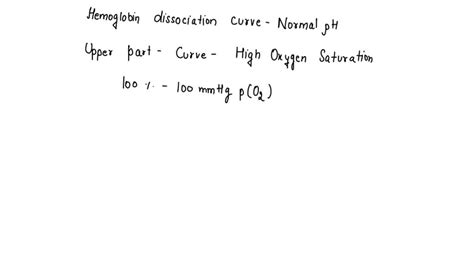 Hemoglobin dissociation curve - Normal pH
Upper part - Curve - High Oxygen Saturation
100 % - 100 mmHg p(O2)